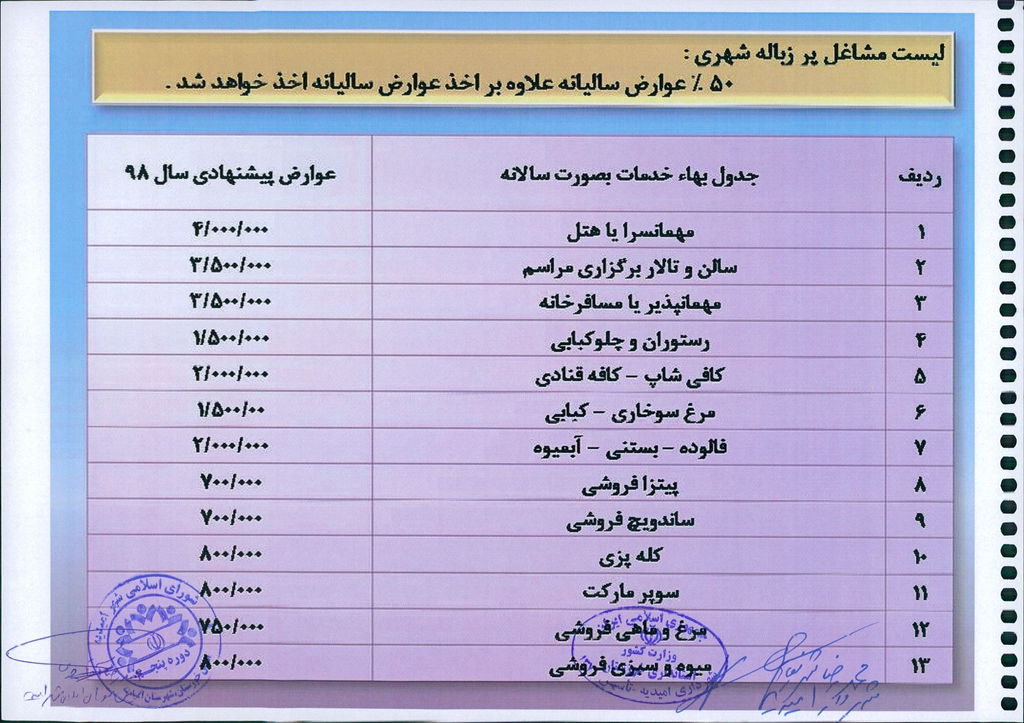 لیست مشاغل پر زباله شهری :
۵۰ ٪ عوارض سالیانه علاوه بر اخذ عوارض سالیانه اخذ خواهد شد .
ردیف جدول بهاء خدمات بصورت سالانه عوارض پیشنهادی سال ۹۸
۱ مهمانسرا یا هتل ۴/۰۰۰/۰۰۰
۲ سالن و تالار برگزاری مراسم ۳/۵۰۰/۰۰۰
۳ مهمانپذیر یا مسافرخانه ۳/۵۰۰/۰۰۰
۴ رستوران و چلوکبابی ۱/۵۰۰/۰۰۰
۵ کافی شاپ – کافه قنادی ۲/۰۰۰/۰۰۰
۶ مرغ سوخاری – کبابی ۱/۵۰۰/۰۰
۷ فالوده – بستنی – آبمیوه ۲/۰۰۰/۰۰۰
۸ پیتزا فروشی ۷۰۰/۰۰۰
۹ ساندویچ فروشی ۷۰۰/۰۰۰
۱۰ کله پزی ۸۰۰/۰۰۰
۱۱ سوپر مارکت ۸۰۰/۰۰۰
۱۲ مرغ و ماهی فروشی ۷۵۰/۰۰۰
۱۳ میوه و سبزی فروشی ۸۰۰/۰۰۰
شورای اسلامی شهر امیدیه
دوره پنجم
جمهوری اسلامی ایران
وزارت کشور